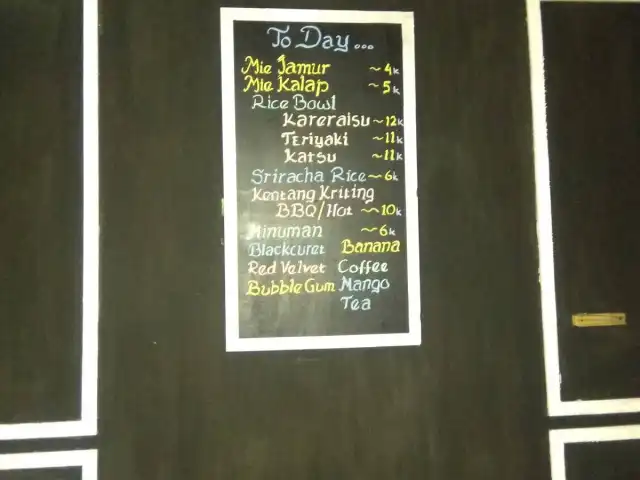 To Day...
Mie Jamur ~4k
Mie Kalap ~5k
Rice Bowl
Kareraisu ~12k
Teriyaki ~11k
Katsu ~11k
Sriracha Rice ~6k
Kentang Kriting
BBQ/Hot ~10k
Minuman ~6k
Blackcuret Banana
Red Velvet Coffee
Bubble Gum Mango
Tea